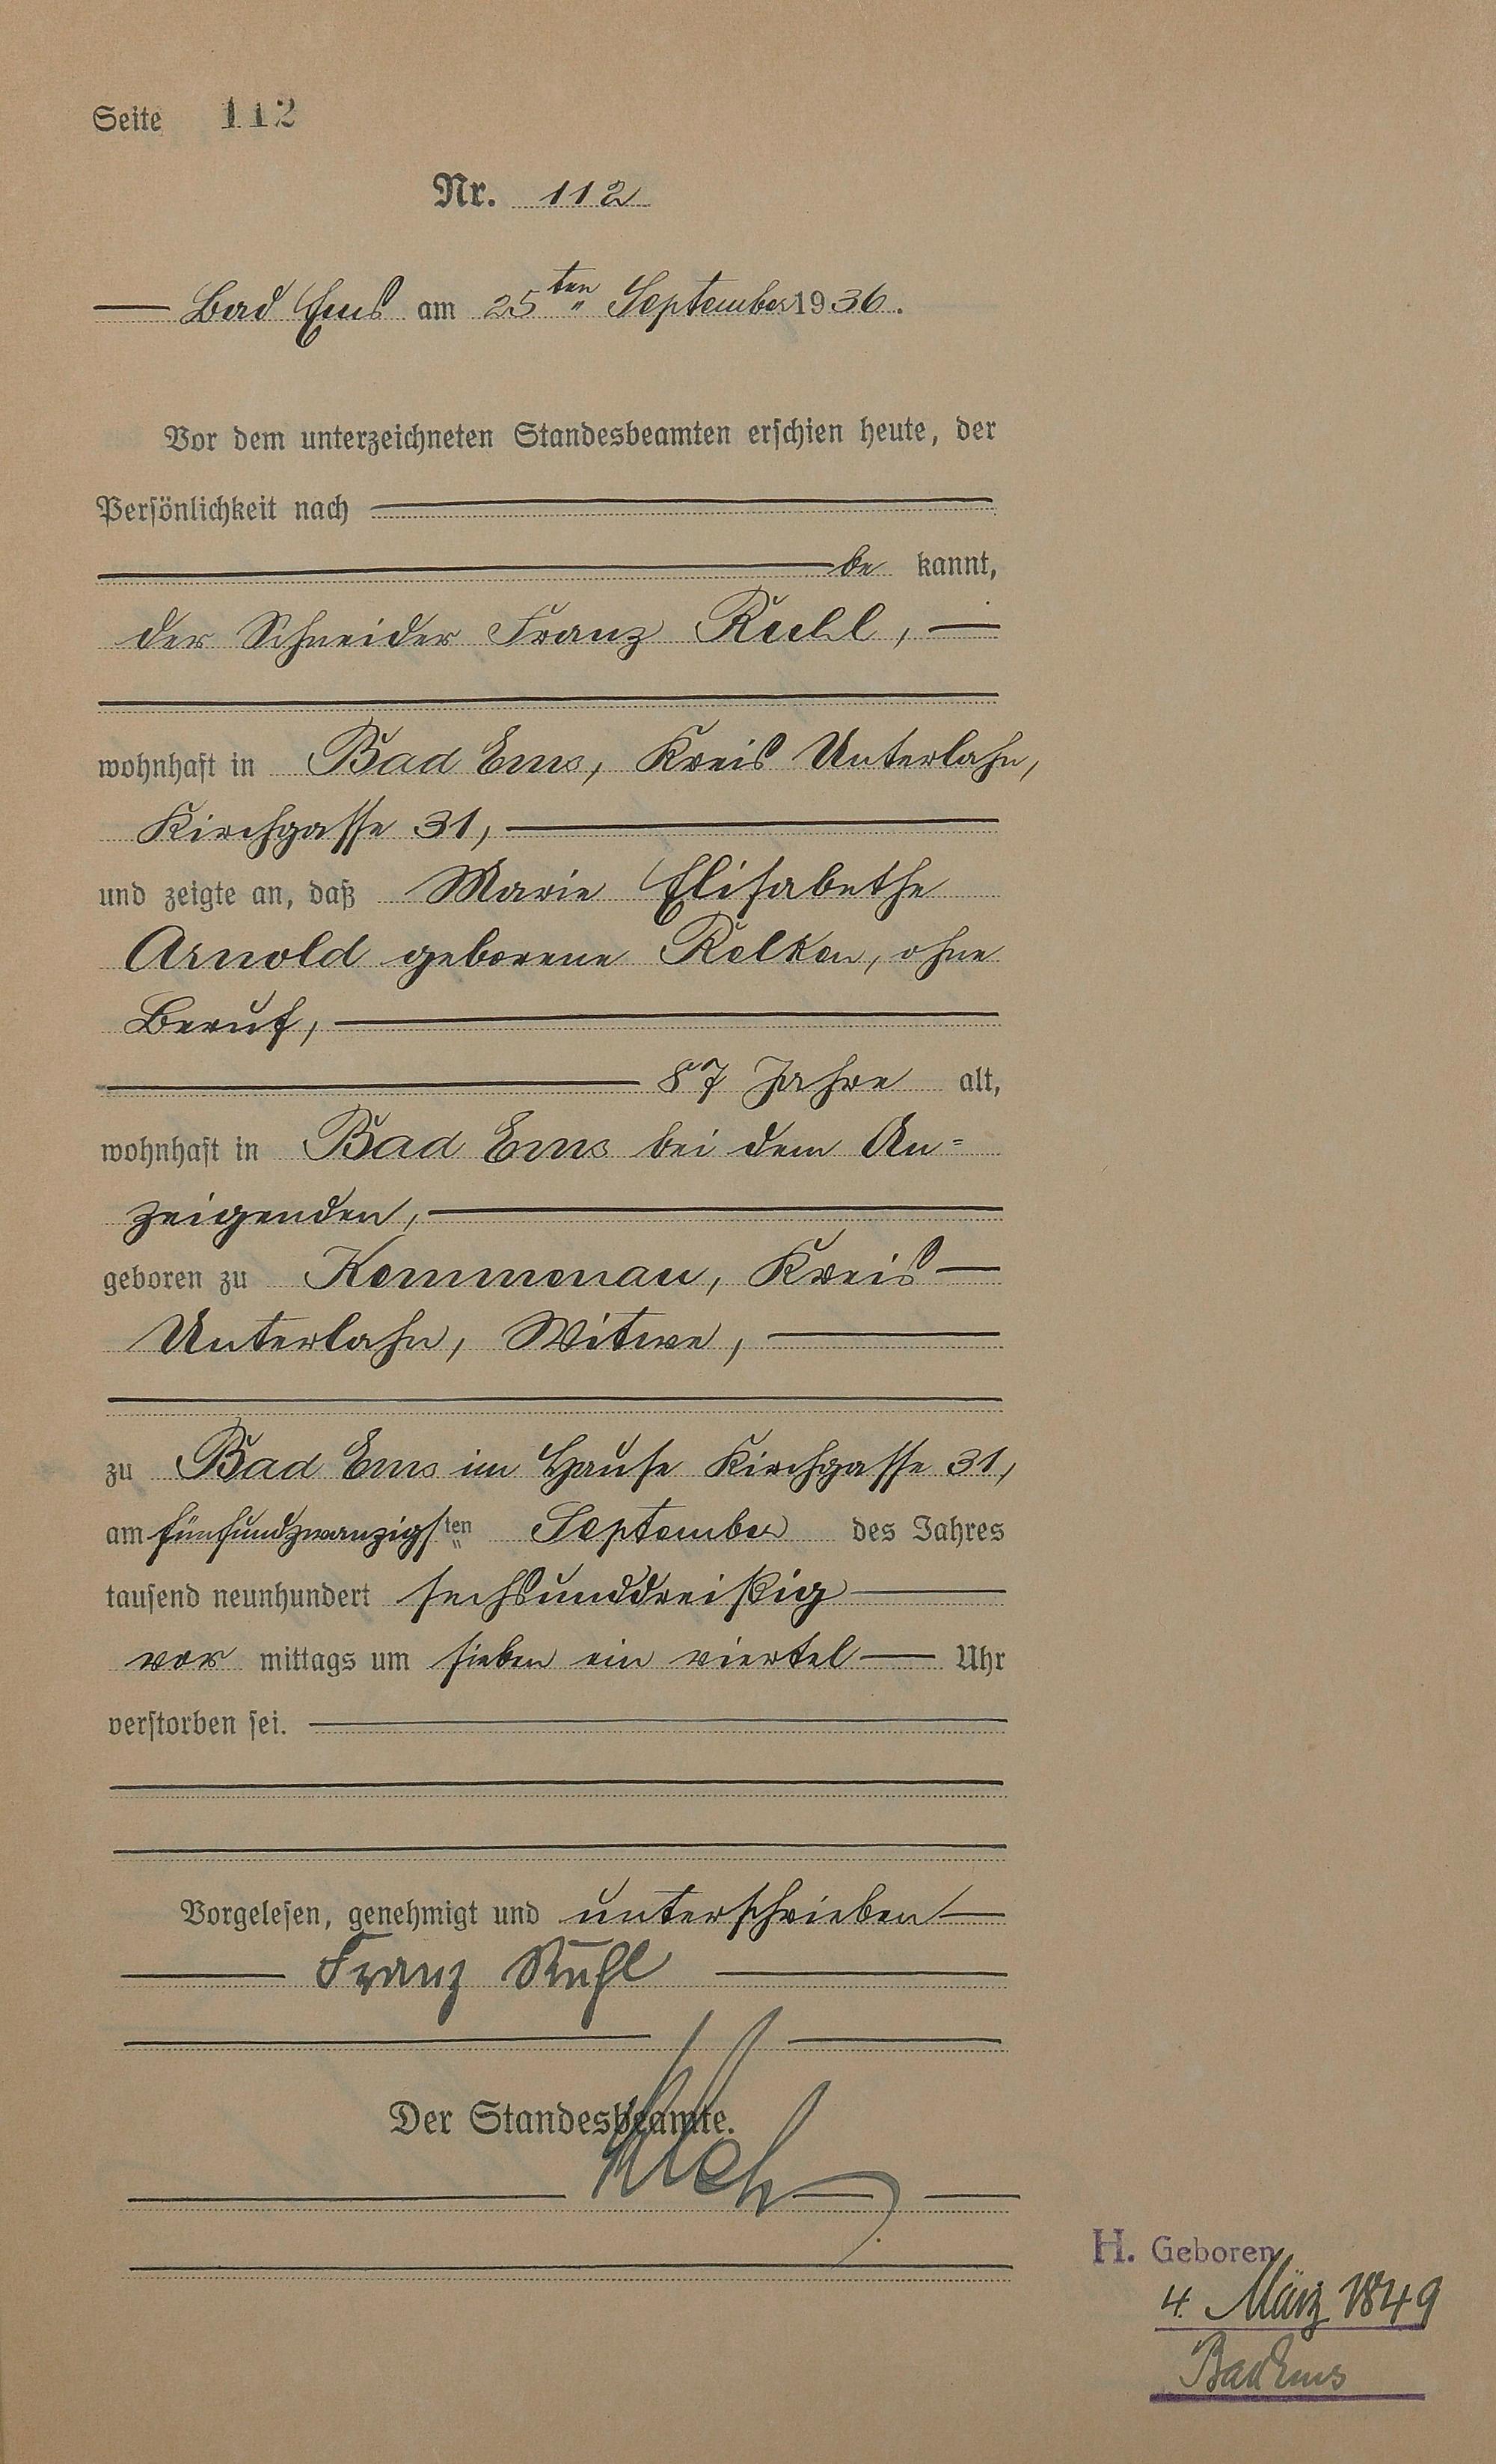 Seite 112
Nr. 112
Bad Ems am 25ten September 1936.
Vor dem unterzeichneten Standesbeamten erschien heute, der
Persönlichkeit nach
be kannt,
der Schneider Franz Ruhl,
wohnhaft in Bad Ems, Kreis Unterlahn,
Kirchgasse 31,
und zeigte an, daß Marie Elisabethe
Arnold geborene Relken, ohne
Beruf,
87 Jahre alt,
wohnhaft in Bad Ems bei dem An=
zeigenden,
geboren zu Kemmenau, Kreis
Unterlahn, Witwe,
zu Bad Ems im Hause Kirchgasse 31,
am fünfundzwanzigsten September des Jahres
tausend neunhundert sechsunddreißig
vor mittags um sieben ein viertel Uhr
verstorben sei.
Vorgelesen, genehmigt und unterschrieben
Franz Ruhl
Der Standesbeamte.
H. Geboren
4. März 1849
Bad Ems